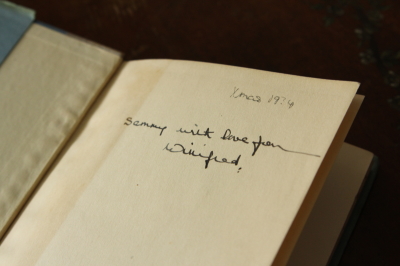 Xmas 1934
Sammy with love from
Winifred.